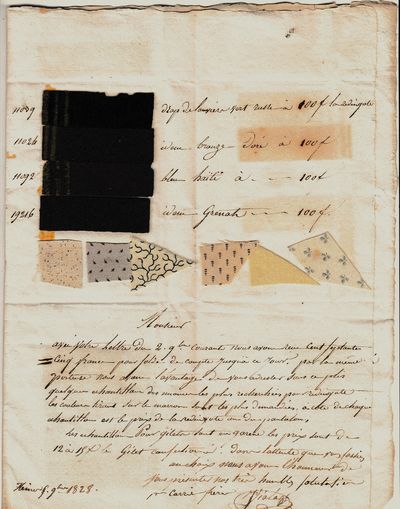 11029 drap de Louviers vert russe à 100f la redingote
11026 idem bronze Doré à 100f
11092 bleu haïti à 100f
19216 idem Grenat 100f
Monsieur
avec votre Lettre du 2 9bre Courant nous avons reçu Cent soixante
cinq francs pour solde de compte jusqu'à ce jour. par la même
nous avons l'avantage de vous adresser sous ce plis
quelques échantillons des nouveautés les plus recherchées pour redingote
les couleurs tirant sur le marron sont les plus demandées, à côté de chaque
échantillon est le prix de la redingote ou du pantalon.
Les échantillons pour gilets sont en les prix sont de
12 à 15f le Gilet confectionné. Dans l'attente que vous
un choix nous avons l'honneur de
vous nos très humbles salutations
9bre 1828
Carrié frère